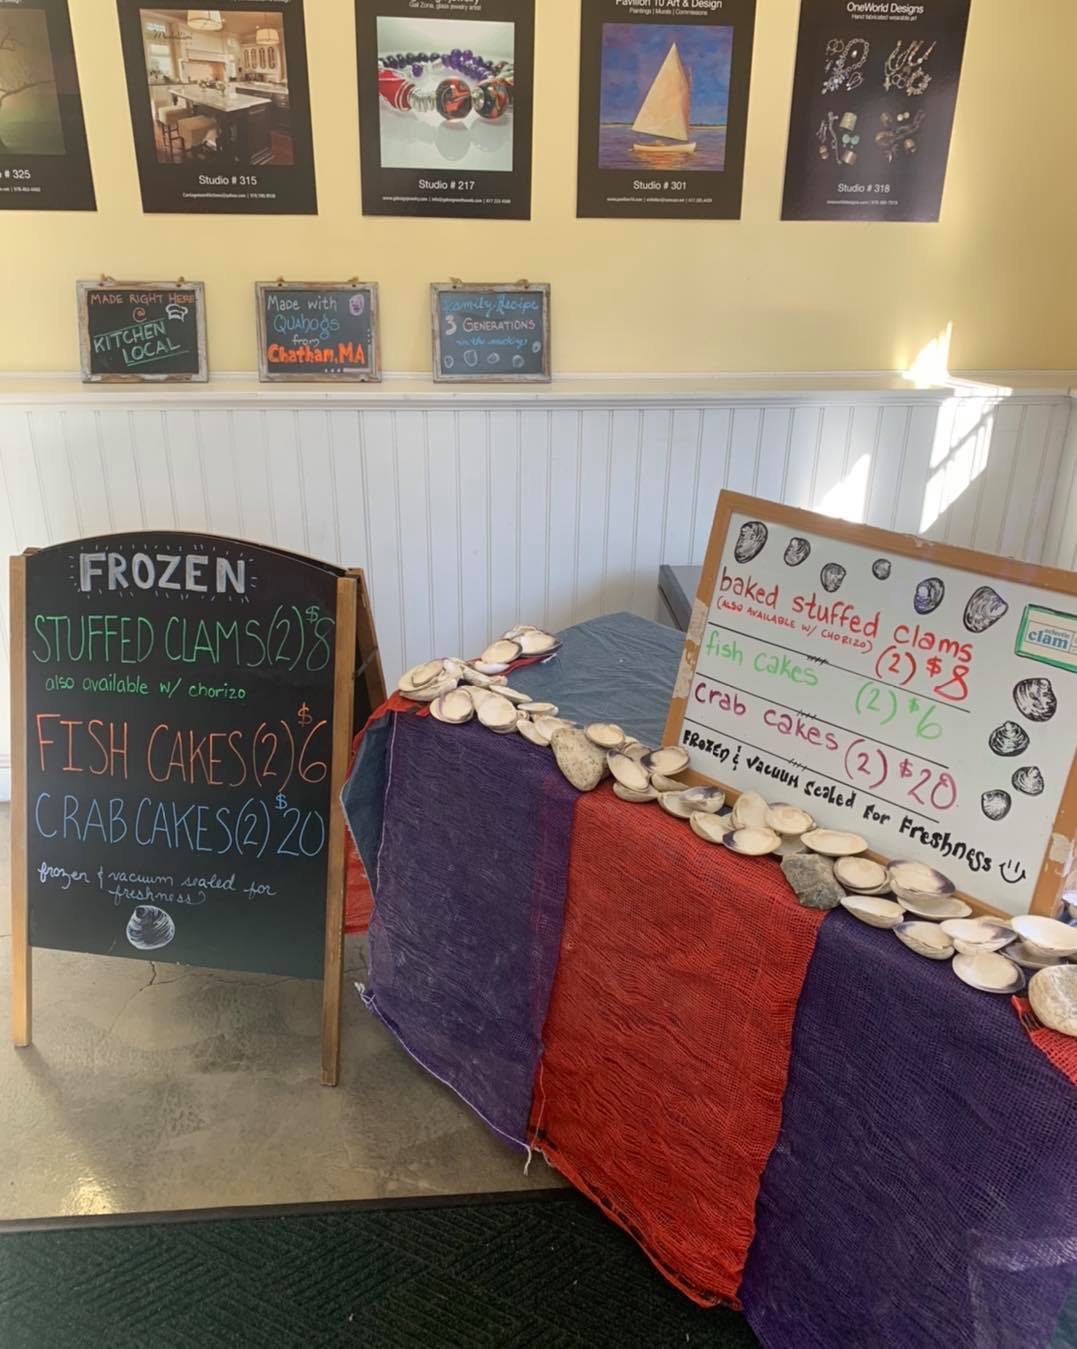 Pavilion 10 Art & Design
Paintings | Murals | Commissions
OneWorld Designs
Hand fabricated wearable art
# 325
Studio # 315
Studio # 217
Studio # 301
Studio # 318
MADE RIGHT HERE
@
KITCHEN
LOCAL
Made with
Quahogs
from
Chatham, MA
Family Recipe
3 GENERATIONS
in the making
FROZEN
STUFFED CLAMS (2) $8
also available w/ chorizo
FISH CAKES (2) $6
CRAB CAKES (2) $20
frozen & vacuum sealed for
freshness
baked stuffed clams
(ALSO AVAILABLE W/ CHORIZO) (2) $8
fish cakes (2) $6
crab cakes (2) $20
FROZEN & VACUUM sealed FOR FResHNess
clam